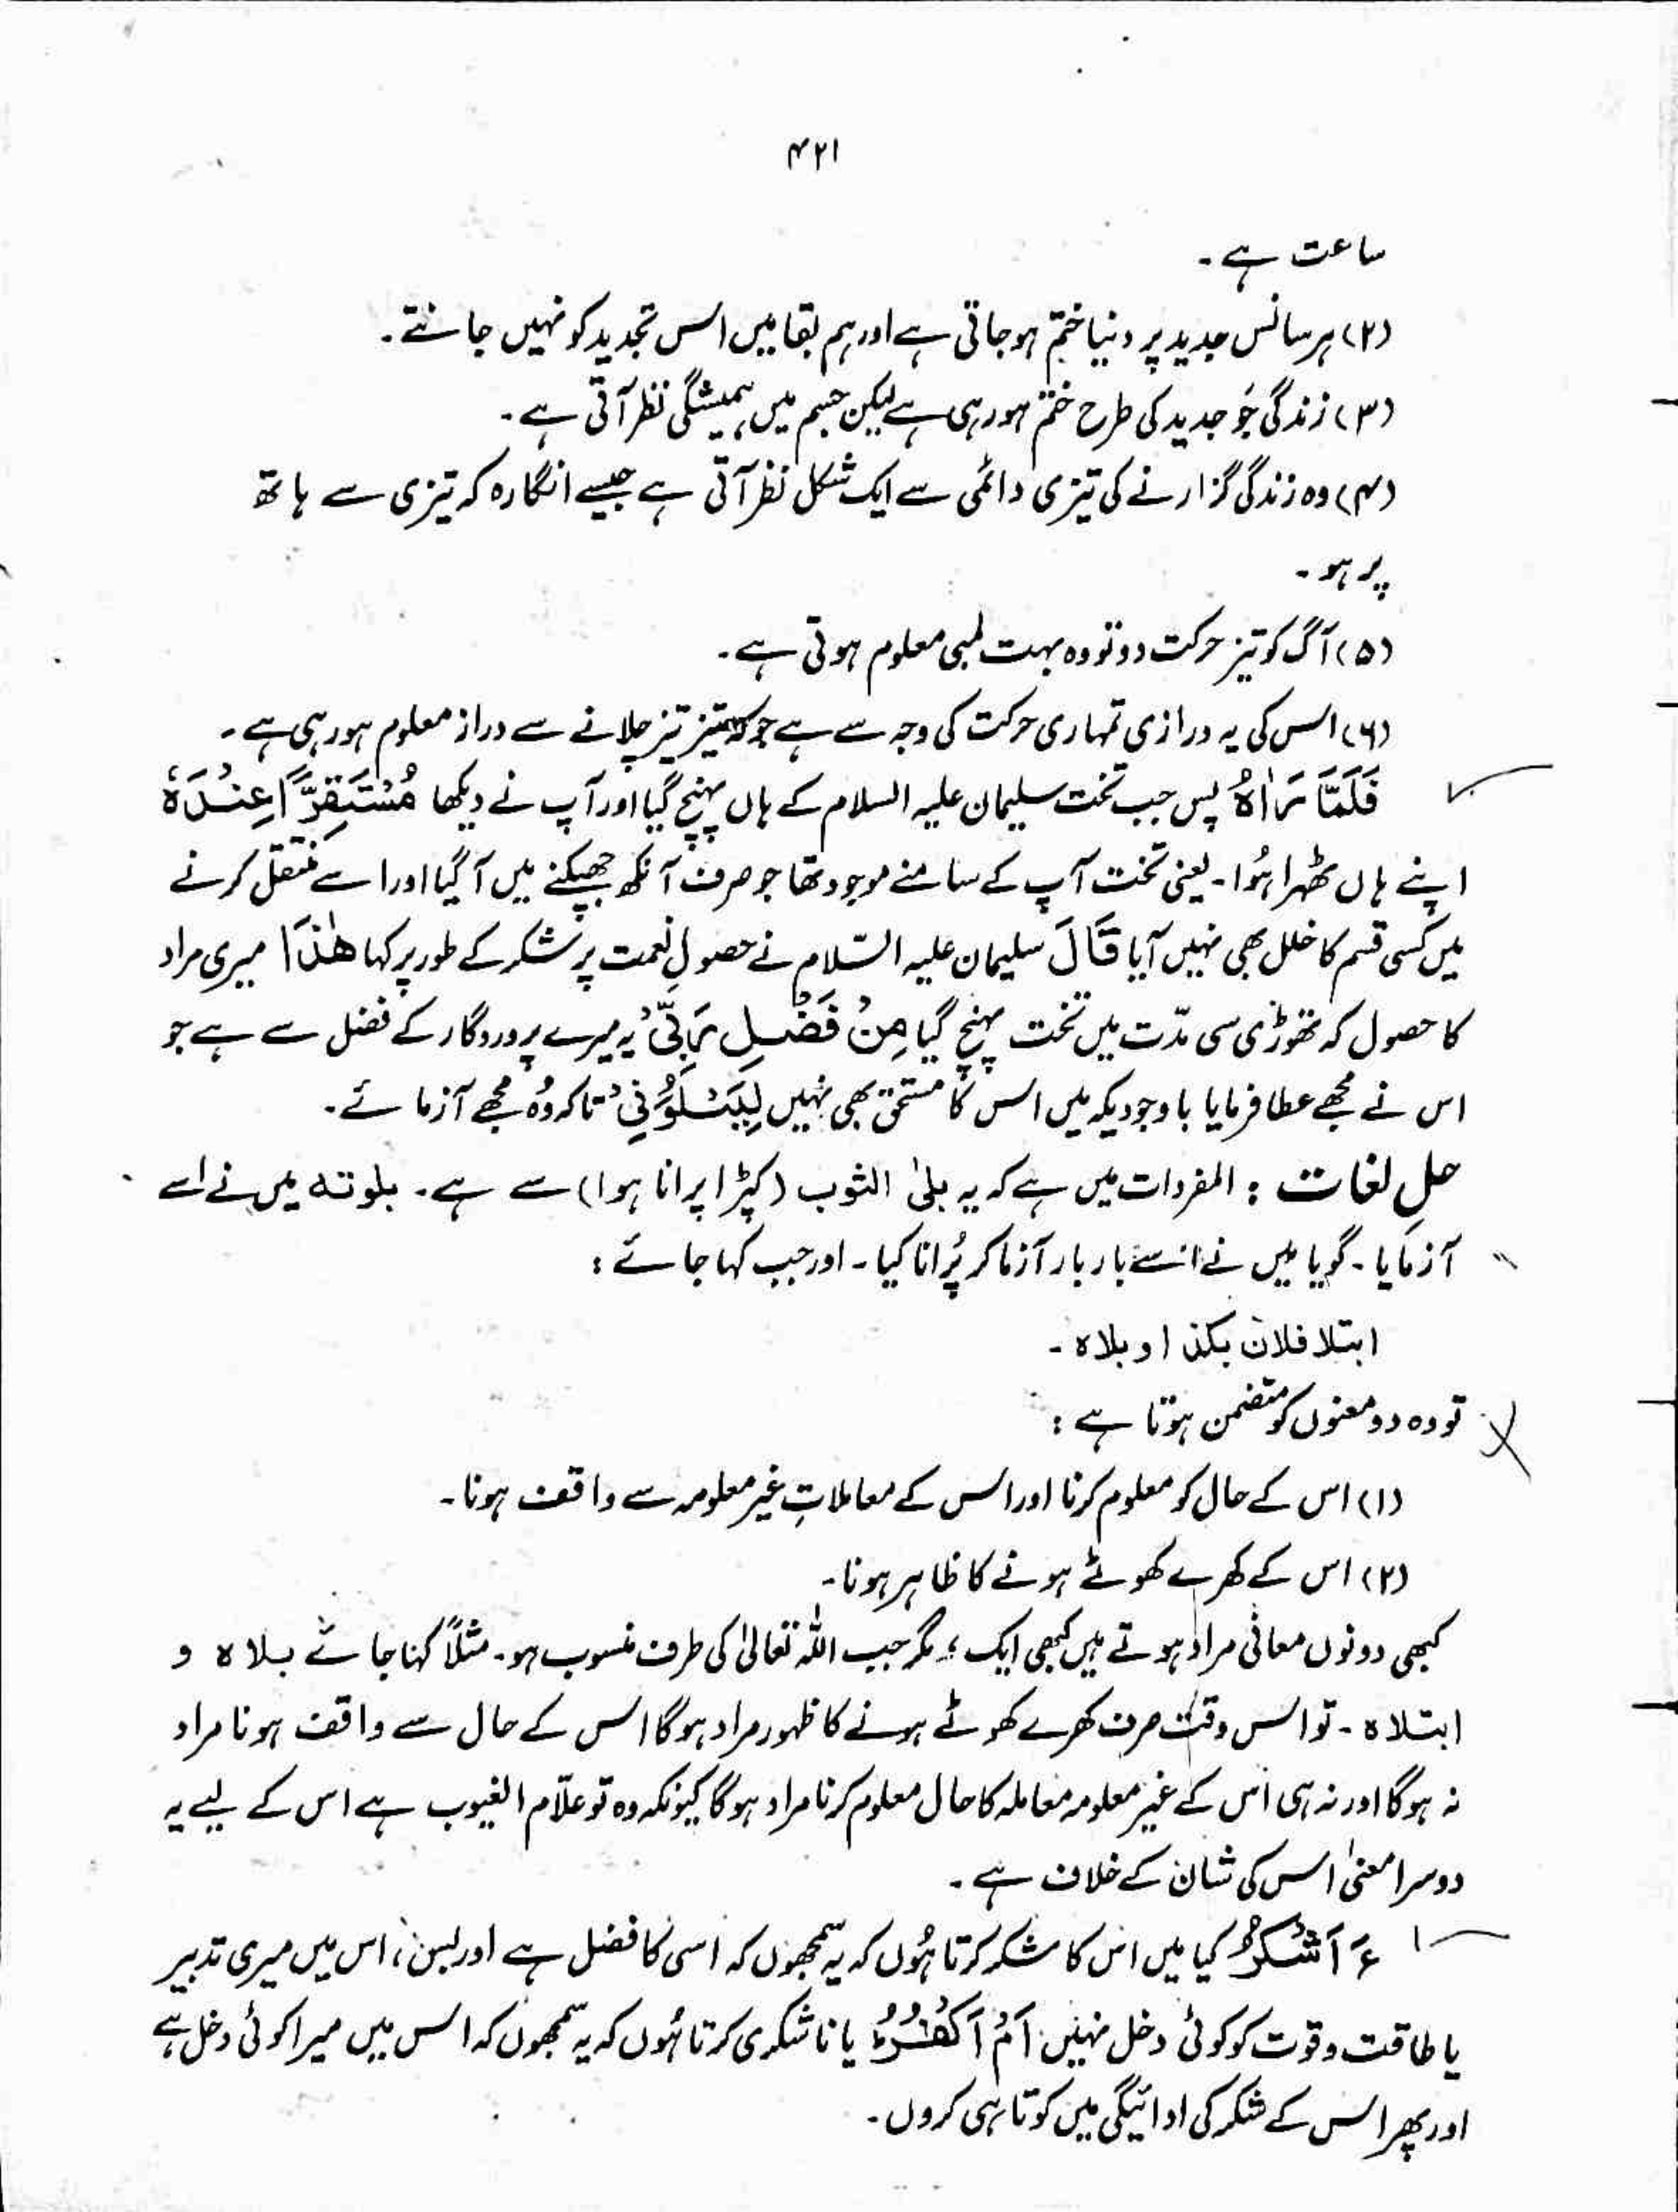 ۴۲۱
ساعت ہے۔
(۲) ہر سانس جدید پر دنیا ختم ہو جاتی ہے اور ہم بقا میں اس تجدید کو نہیں جانتے۔
(۳) زندگی جُو جدید کی طرح ختم ہو رہی ہے لیکن جسم میں ہمیشگی نظر آتی ہے۔
(۴) وہ زندگی گزارنے کی تیزی دائمی سے ایک شکل نظر آتی ہے جیسے انگارہ کہ تیزی سے ہاتھ
پر ہو۔
(۵) آگ کو تیز حرکت دو تو وہ بہت لمبی معلوم ہوتی ہے۔
(۶) اس کی یہ درازی تمہاری حرکت کی وجہ سے ہے جو کہ تیز تیز چلانے سے دراز معلوم ہو رہی ہے۔
فَلَمَّا رَاٰهُ پس جب تخت سلیمان علیہ السلام کے ہاں پہنچ گیا اور آپ نے دیکھا مُسْتَقِرًّا عِنْدَهٗ
اپنے ہاں ٹھہرا ہُوا۔ یعنی تخت آپ کے سامنے موجود تھا جو صرف آنکھ جھپکنے میں آ گیا اور اسے منتقل کرنے
میں کسی قسم کا خلل بھی نہیں آیا قَالَ سلیمان علیہ السّلام نے حصولِ نعمت پر شکر کے طور پر کہا هٰذَا میری مراد
کا حصول کہ تھوڑی سی مدّت میں تخت پہنچ گیا مِنْ فَضْلِ رَبِّیْ یہ میرے پروردگار کے فضل سے ہے جو
اس نے مجھے عطا فرمایا باوجودیکہ میں اس کا مستحق بھی نہیں لِیَبْلُوَنِیْ تاکہ وُہ مجھے آزمائے۔
حلِ لغات : المفردات میں ہے کہ یہ بلیٰ الثوب (کپڑا پرانا ہوا) سے ہے۔ بلوتہ میں نے اسے
آزمایا۔ گویا میں نے اسے بار بار آزما کر پُرانا کیا۔ اور جب کہا جائے :
ابتلا فلان بکذا و بلاہ۔
تو وہ دو معنوں کو متضمن ہوتا ہے :
(۱) اس کے حال کو معلوم کرنا اور اس کے معاملاتِ غیر معلومہ سے واقف ہونا۔
(۲) اس کے کھرے کھوٹے ہونے کا ظاہر ہونا۔
کبھی دونوں معانی مراد ہوتے ہیں کبھی ایک ؛ مگر جب اللہ تعالیٰ کی طرف منسوب ہو۔ مثلاً کہا جائے بلاہ و
ابتلاہ۔ تو اس وقت صرف کھرے کھوٹے ہونے کا ظہور مراد ہو گا اس کے حال سے واقف ہونا مراد
نہ ہو گا اور نہ ہی اس کے غیر معلومہ معاملہ کا حال معلوم کرنا مراد ہو گا کیونکہ وہ تو علّام الغیوب ہے اس کے لیے یہ
دوسرا معنیٰ اس کی شان کے خلاف ہے۔
ءَ اَشْکُرُ کیا میں اس کا شکر کرتا ہُوں کہ یہ سمجھوں کہ اسی کا فضل ہے اور بس ، اس میں میری تدبیر
یا طاقت و قوت کو کوئی دخل نہیں اَمْ اَکْفُرُ یا ناشکری کرتا ہُوں کہ یہ سمجھوں کہ اس میں میرا کوئی دخل ہے
اور پھر اس کے شکر کی ادائیگی میں کوتاہی کروں۔